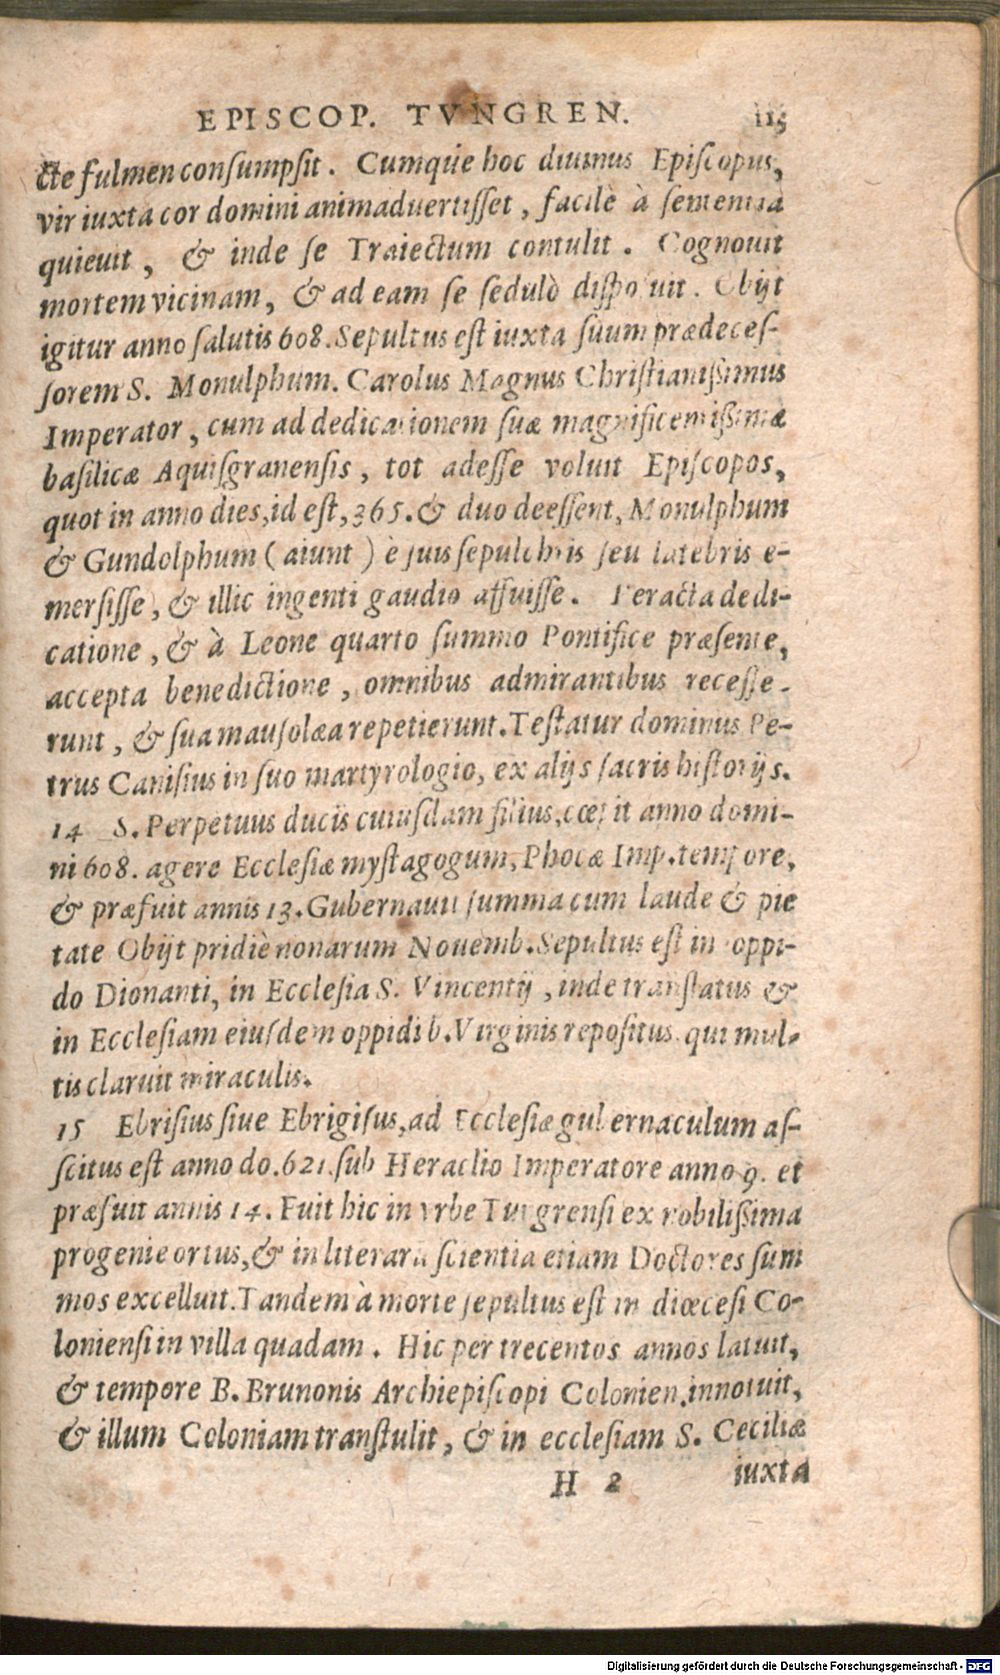 EPISCOP. TVNGREN. 115
cte fulmen conſumpſit. Cumque hoc diuinus Epiſcopus,
vir iuxta cor domini animaduertiſſet, facilè à ſententia
quieuit, & inde ſe Traiectum contulit. Cognouit
mortem vicinam, & ad eam ſe ſedulò diſpoſuit. Obijt
igitur anno ſalutis 608. Sepultus eſt iuxta ſuum prædeceſ-
ſorem S. Monulphum. Carolus Magnus Chriſtianißimus
Imperator, cum ad dedicationem ſuæ magnificentißimæ
baſilicæ Aquiſgranenſis, tot adeſſe voluit Epiſcopos,
quot in anno dies, id eſt, 365. & duo deeſſent, Monulphum
& Gundolphum (aiunt) è ſuis ſepulchris ſeu latebris e-
merſiſſe, & illic ingenti gaudio affuiſſe. Peracta dedi-
catione, & à Leone quarto ſummo Pontifice præſente,
accepta benedictione, omnibus admirantibus receſſe-
runt, & ſua mauſolæa repetierunt. Teſtatur dominus Pe-
trus Caniſius in ſuo martyrologio, ex alijs ſacris hiſtorijs.
14 S. Perpetuus ducis cuiuſdam filius, cœpit anno domi-
ni 608. agere Eccleſiæ myſtagogum, Phocæ Imp. tempore,
& præfuit annis 13. Gubernauit ſumma cum laude & pie
tate Obijt pridiè nonarum Nouemb. Sepultus eſt in oppi-
do Dionanti, in Eccleſia S. Vincentij, inde tranſlatus &
in Eccleſiam eiuſdem oppidi b. Virginis repoſitus. qui mul-
tis claruit miraculis.
15 Ebriſius ſiue Ebrigiſus, ad Eccleſiæ gubernaculum aſ-
ſcitus eſt anno do. 621. ſub Heraclio Imperatore anno 9. et
præfuit annis 14. Fuit hic in vrbe Tungrenſi ex nobilißima
progenie ortus, & in literarū ſcientia etiam Doctores ſum
mos excelluit. Tandem à morte ſepultus eſt in diœceſi Co-
lonienſi in villa quadam. Hic per trecentos annos latuit,
& tempore B. Brunonis Archiepiſcopi Colonien. innotuit,
& illum Coloniam tranſtulit, & in eccleſiam S. Ceciliæ
H 2 iuxta
Digitalisierung gefördert durch die Deutsche Forschungsgemeinschaft - DFG